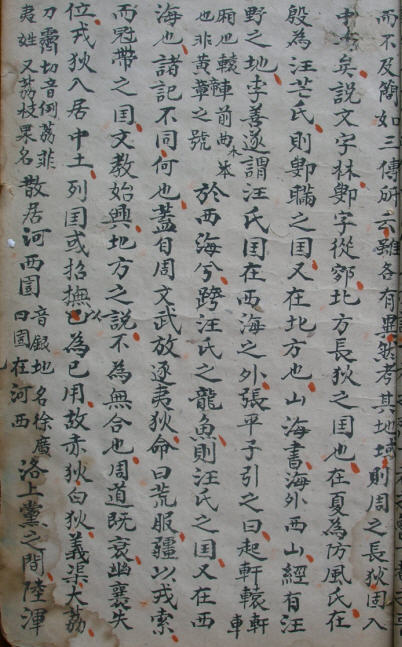 而不及簡如三傳所云雖各有異然考其地域則周之長狄固入
中矣說文字林鄋字從北方長狄之国也在夏為防風氏在
殷為汪芒氏則鄋瞞之国又在北方也山海書海外西山經有汪
野之地李善遂謂汪氏国在西海之外張平子引之曰起軒轅軒車
廂也轅輈前曲木
也非黃帝之號
於西海兮跨汪氏之龍魚則汪氏之国又在西
海也諸記不同何也蓋自周文武放逐夷狄命曰荒服疆以戎索
而冠帶之国文教始興地方之說不為無合也周道既衰幽襄失
位戎狄入居中土列国或招撫以為已用故赤狄白狄義渠大荔
刀霽切音例荔非
夷姓又荔枝果名
散居河西圁
音銀地名徐廣
曰圁在河西
洛上黨之間陸渾